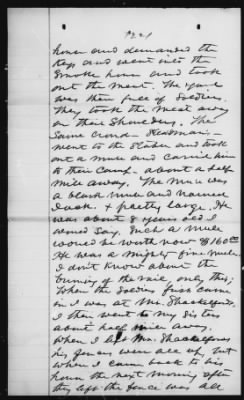 house and demanded the
keys and went into the
smoke house and took
out the meat. The yard
was then full of soldiers.
They took the meat away
on their shoulders. The
same crowd
went to the stable and took
out a mule and carried him
to their camp about a half
mile away. The mule was
a black mule and named
Jack, & pretty large. He
was about 8 years old I
would say. Such a mule
would be worth now $160.00
He was a mighty fine mule.
I don't know about the
burning of the rails only this;
When the soldiers first came
in I was at Mr. Shackelford's.
I then went to my sisters
about half mile away.
When I left Mr. Shackelfords
his fences were all up, but
when I came back to his
house the next morning after
they left the fence was all